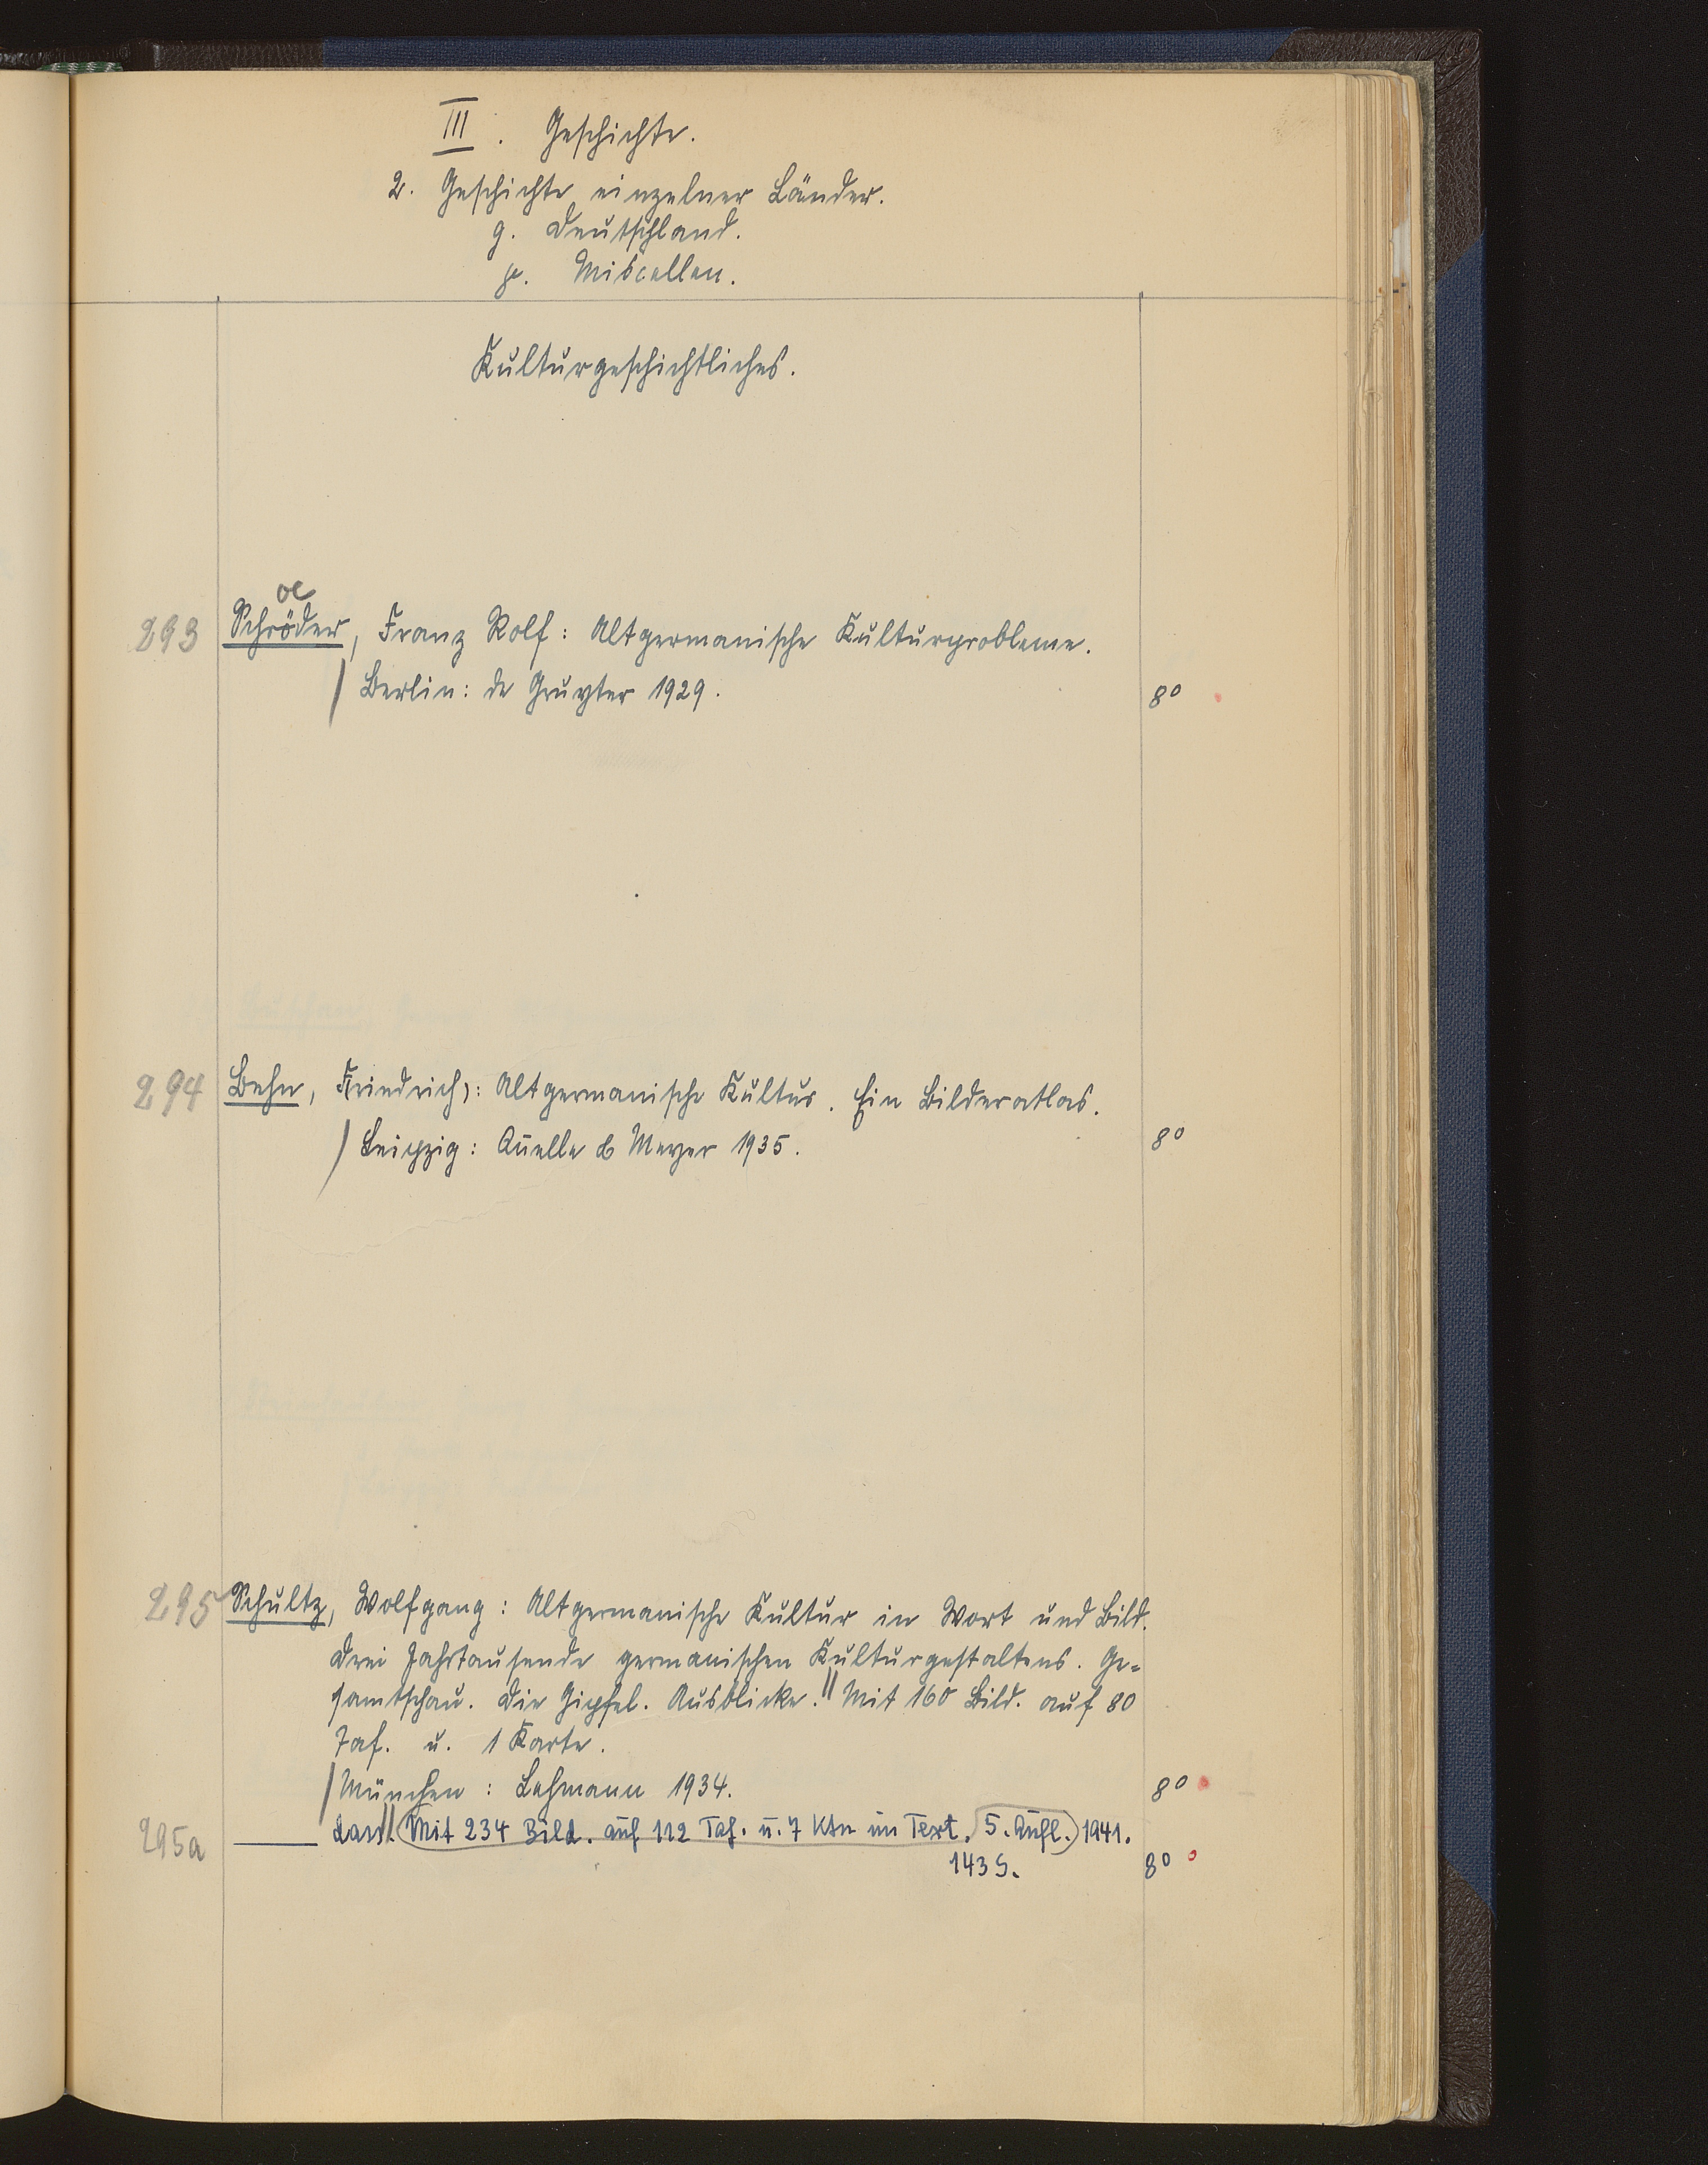 III. Geschichte.
2. Geschichte einzelner Länder.
g. Deutschland.
p. Miscellen.
Kulturgeschichtliches.
oe
293 Schröder, Franz Rolf: Altgermanische Kulturprobleme.
/ Berlin: de Gruyter 1929. 8°
294 Behn, F(riedrich): Altgermanische Kultur. Ein Bilderatlas.
/ Leipzig: Quelle & Meyer 1935. 8°
295 Schultz, Wolfgang: Altgermanische Kultur in Wort und Bild.
Drei Jahrtausende germanischen Kulturgestaltens. Ge-
samtschau. Die Gipfel. Ausblicke. || Mit 160 Bild. auf 80
Taf. u. 1 Karte.
/ München: Lehmann 1934. 8°
295a ——— Dass. || (Mit 234 Bild. auf 112 Taf. u. 7 Ktn im Text. 5. Aufl.) 1941.
143 S. 8°